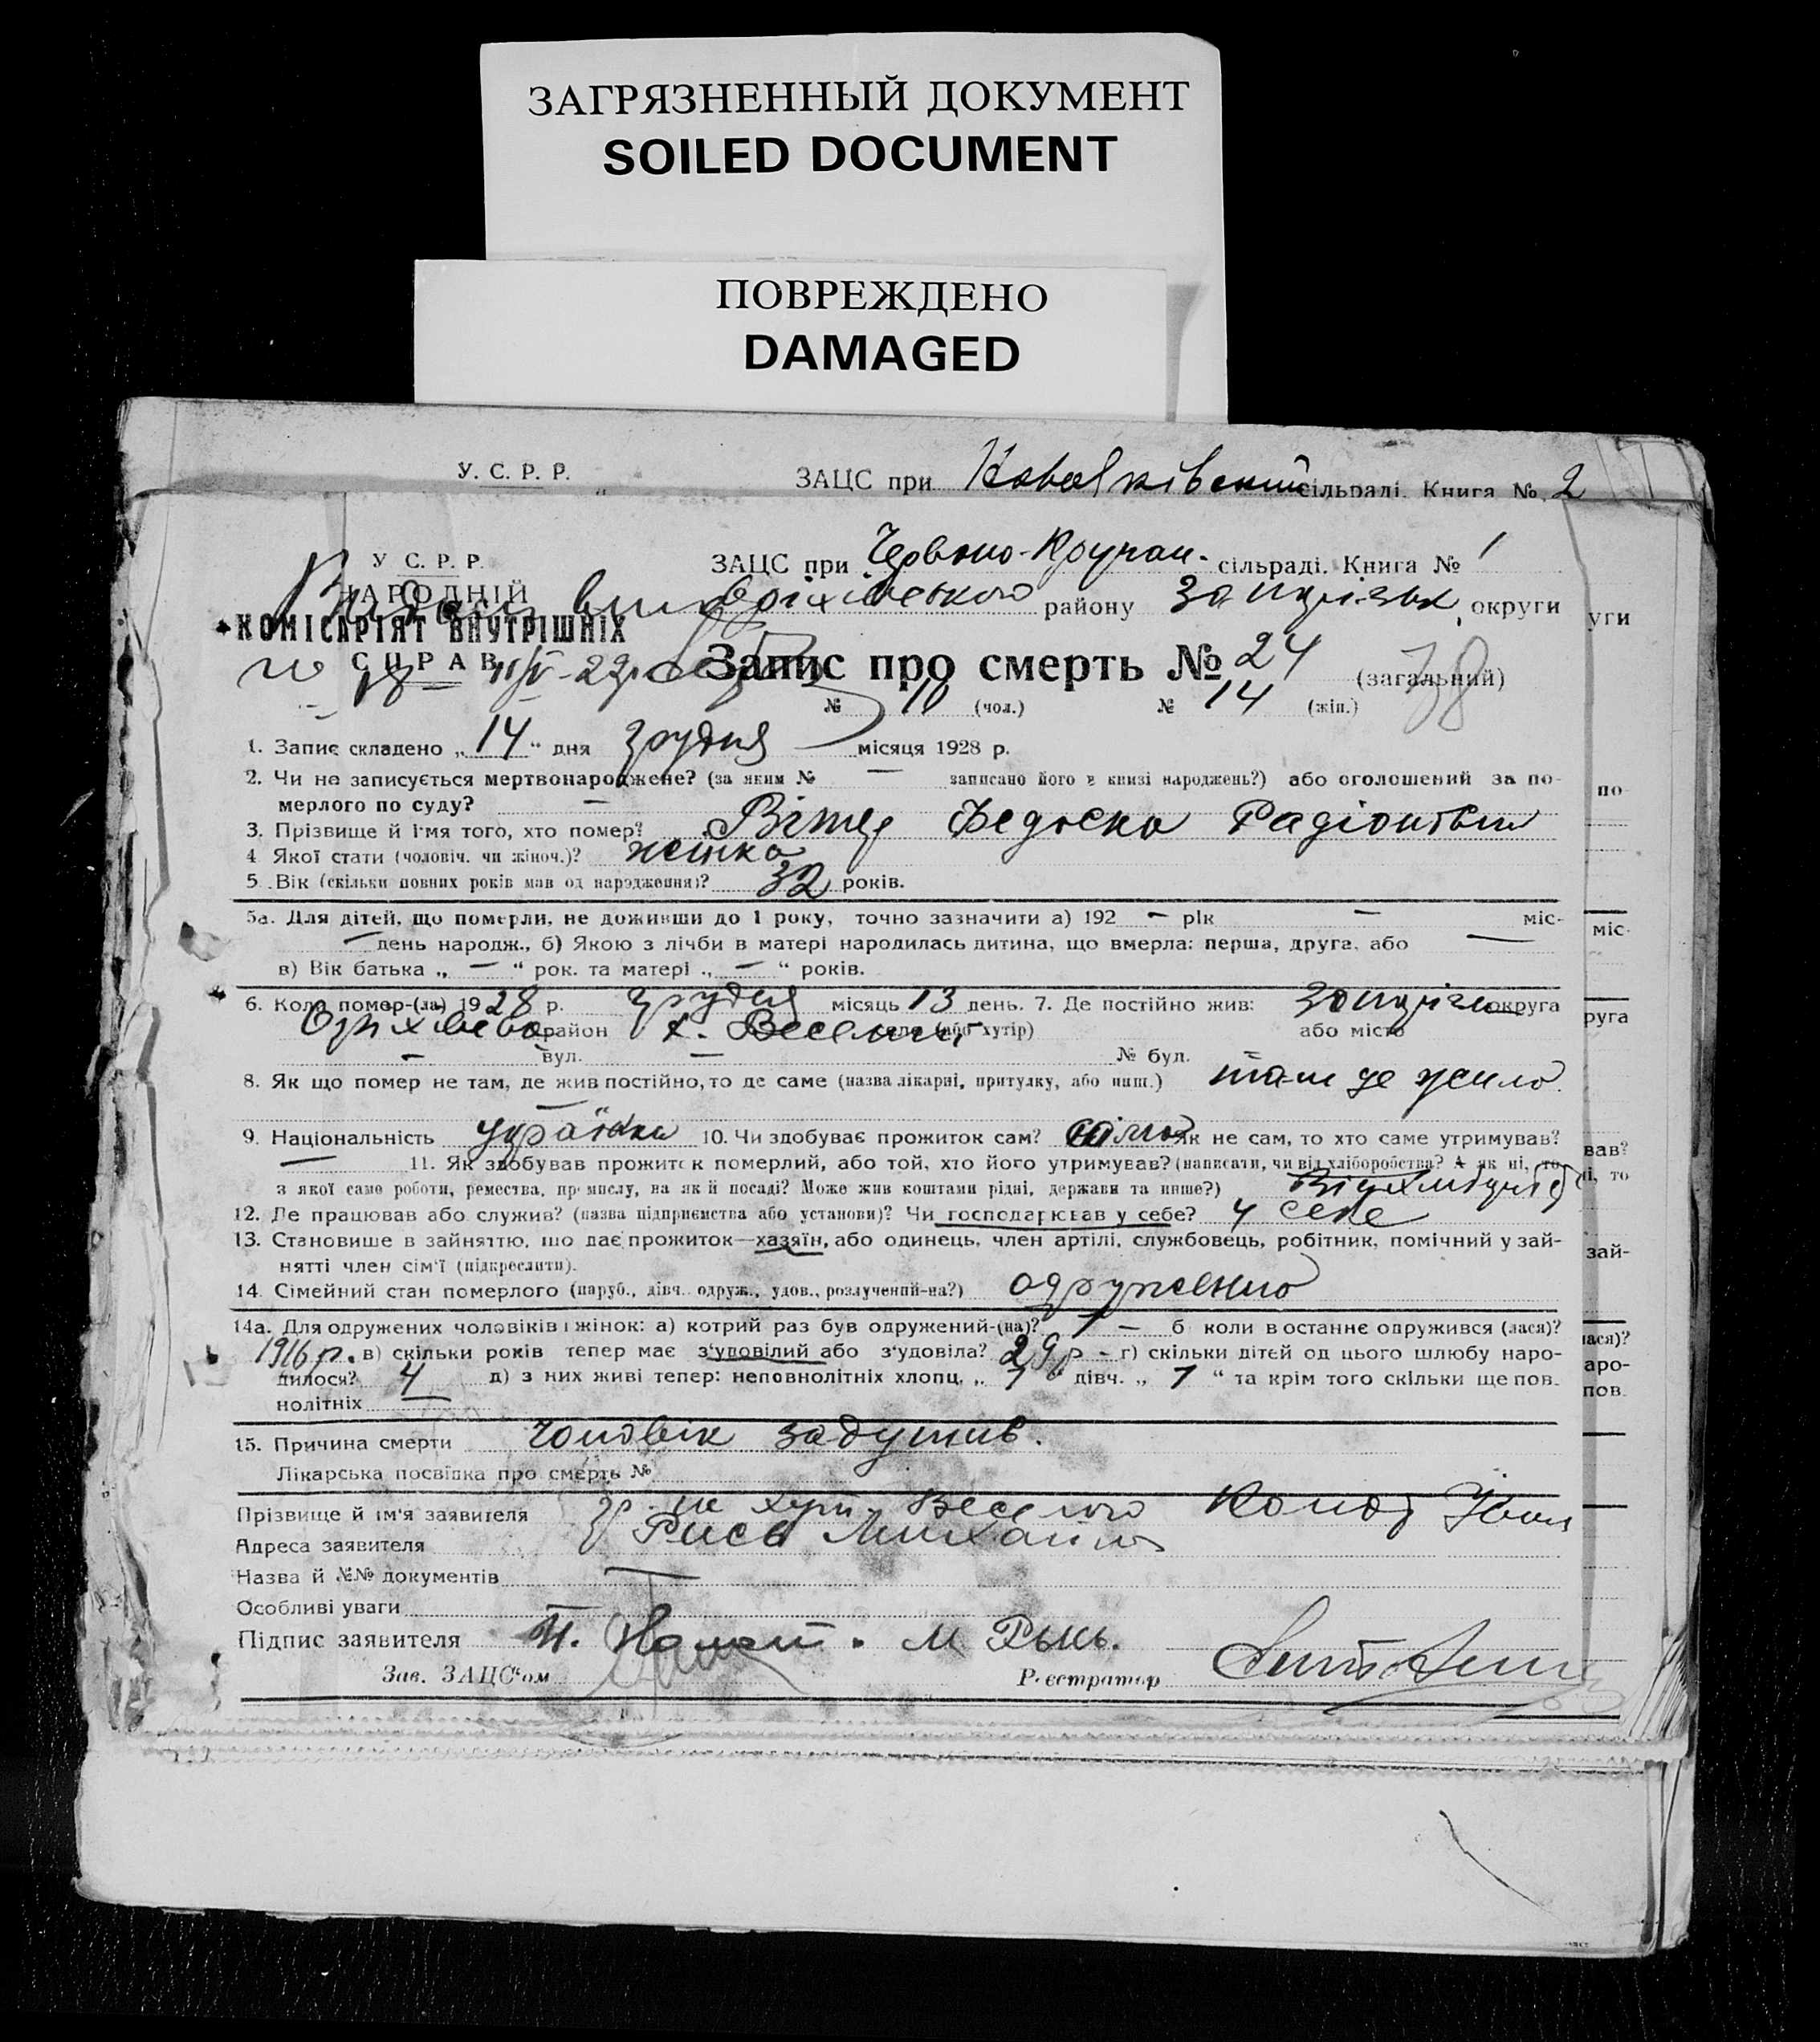 ЗАГРЯЗНЕННЫЙ ДОКУМЕНТ
SOILED DOCUMENT
ПОВРЕЖДЕНО
DAMAGED
У. С. Р. Р. ЗАЦС при сільраді. Книга № 2
У С. Р. Р. ЗАЦС при Червоно-Кручан. сільраді. Книга № 1
НАРОДНІЙ Оріхівського району Запоріжськ. округи
уги
КОМІСАРІЯТ ВНУТРІШНІХ
СПРАВ
Запис про смерть № 24 (загальний) 78
№ 10 (чол.) № 14 (жін.)
1. Запис складено „ 14 “ дня грудня місяця 1928 р.
2. Чи не записується мертвонароджене? (за яким № — записано його в книзі народжень?) або оголошений за по-
по-
мерлого по суду? —
3. Прізвище й ім'я того, хто помер? Федоска Радіонівна
4 Якої стати (чоловіч. чи жіноч.)? жінка
5. Вік (скільки повних років мав од народження)? 32 років.
5а. Для дітей, що померли, не доживши до 1 року, точно зазначити а) 192 — рік — міс-
міс-
— день народж., б) Якою з лічби в матері народилась дитина, що вмерла: перша, друга, або —
в) Вік батька „ — “ рок. та матері „ — “ років.
6. Коли помер-(ла) 1928 р. грудня місяць 13 день. 7. Де постійно жив: округа
руга
район х. Веселий село (або хутір) або місто
— вул. — № буд. —
8. Як що помер не там, де жив постійно, то де саме (назва лікарні, притулку, або инш.) там де жила
—
9. Національність українка 10. Чи здобуває прожиток сам? сама Як не сам, то хто саме утримував?
вав?
— 11. Як здобував прожиток померлий, або той, хто його утримував? (написати, чи від хліборобства? А як ні, то
ні, то
з якої саме роботи, ремества, промислу, на якій посаді? Може жив коштами рідні, держави та инше?)
12. Де працював або служив? (назва підприємства або установи)? Чи господарював у себе? у себе
13. Становище в зайняттю, що дає прожиток—хазяїн, або одинець, член артілі, службовець, робітник, помічний у зай-
зай-
нятті член сім'ї (підкреслити).
14. Сімейний стан померлого (паруб., дівч. одруж., удов., розлучений-на?) одружена
14а. Для одружених чоловіків і жінок: а) котрий раз був одружений-(на)? 1 — б коли востаннє одружився (лася)?
лася)?
1916 р. в) скільки років тепер має з'удовілий або з'удовіла? 29 р - г) скільки дітей од цього шлюбу наро-
аро-
дилося? 4 д) з них живі тепер: неповнолітніх хлопц. „ 1 “ дівч. „ 1 “ та крім того скільки ще пов.
пов.
нолітніх —
15. Причина смерти Чоловік задушив.
Лікарська посвідка про смерть №
Прізвище й ім'я заявителя гр. хут. Веселого
Адреса заявителя Рись Михайло
Назва й №№ документів —
Особливі уваги —
Підпис заявителя М Рысь.
Зав. ЗАЦС'ом Реєстратор